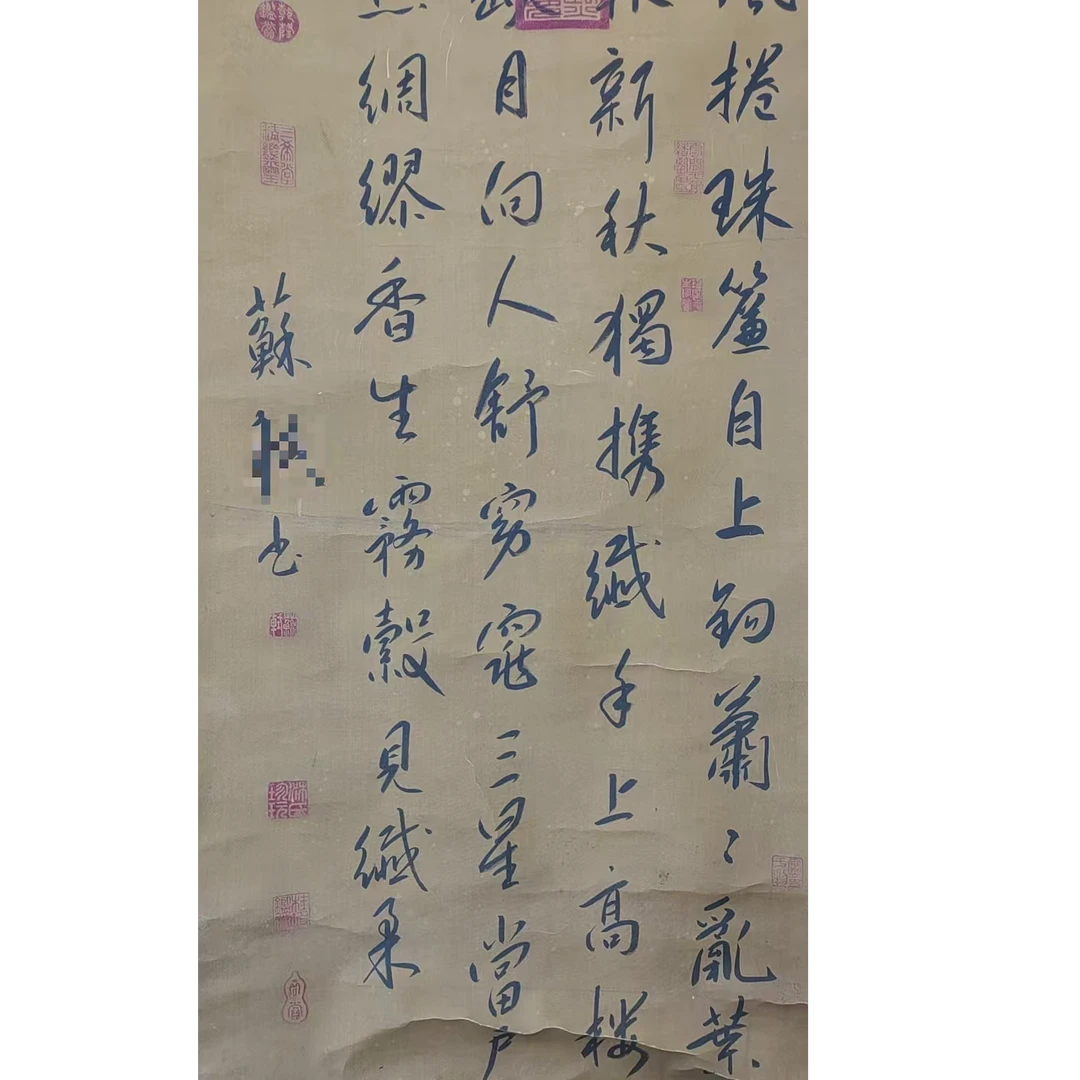 捲珠簾自上鈎蕭〻亂葉
新秋獨携纖手上高楼
月向人舒窈窕三星當户
綢繆香生霧縠見纖柔
蘇
書